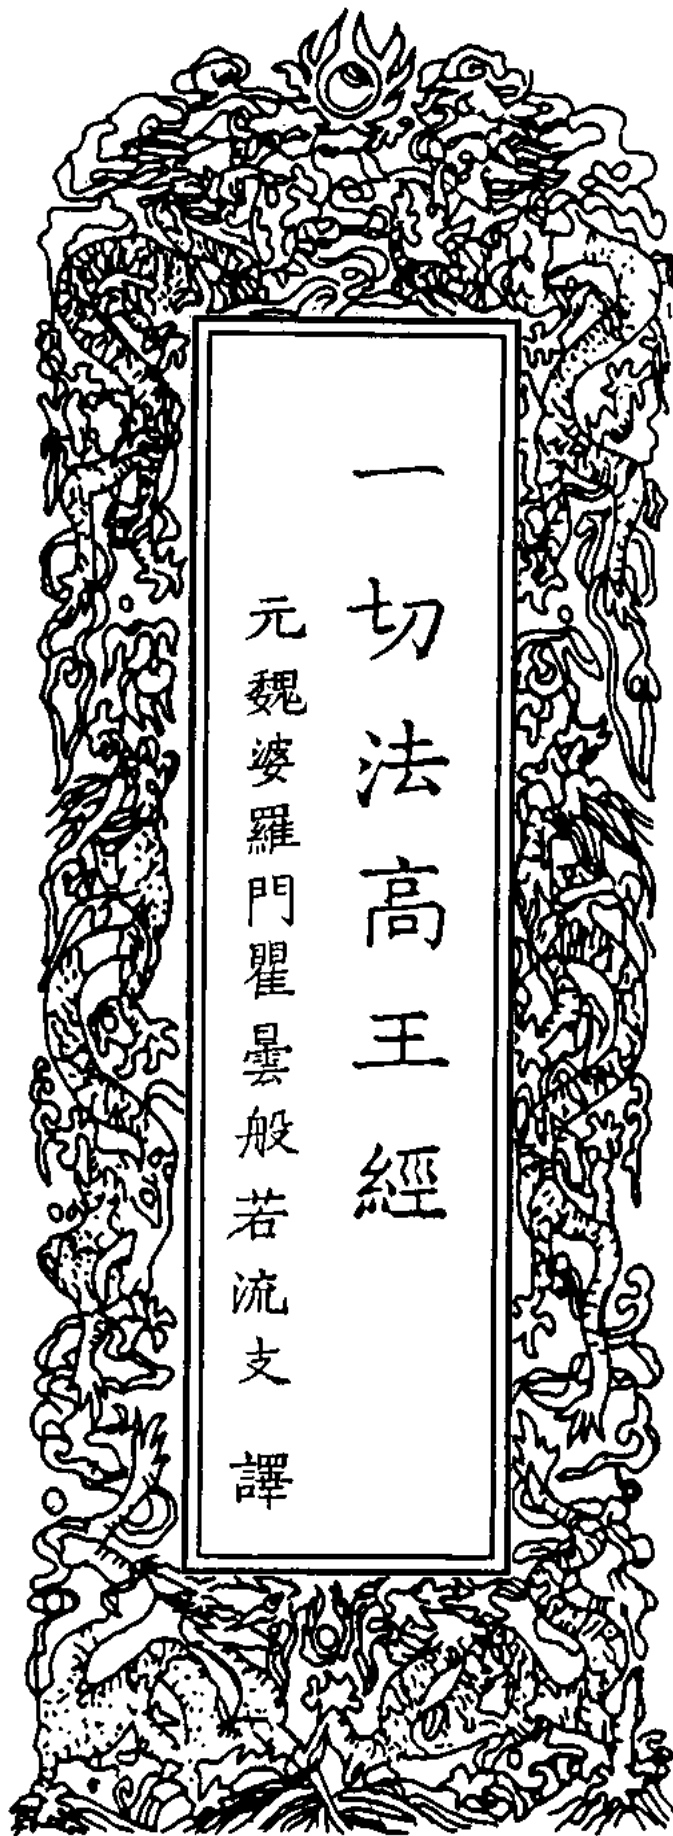 一切法高王經
元魏婆羅門瞿曇般若流支　譯